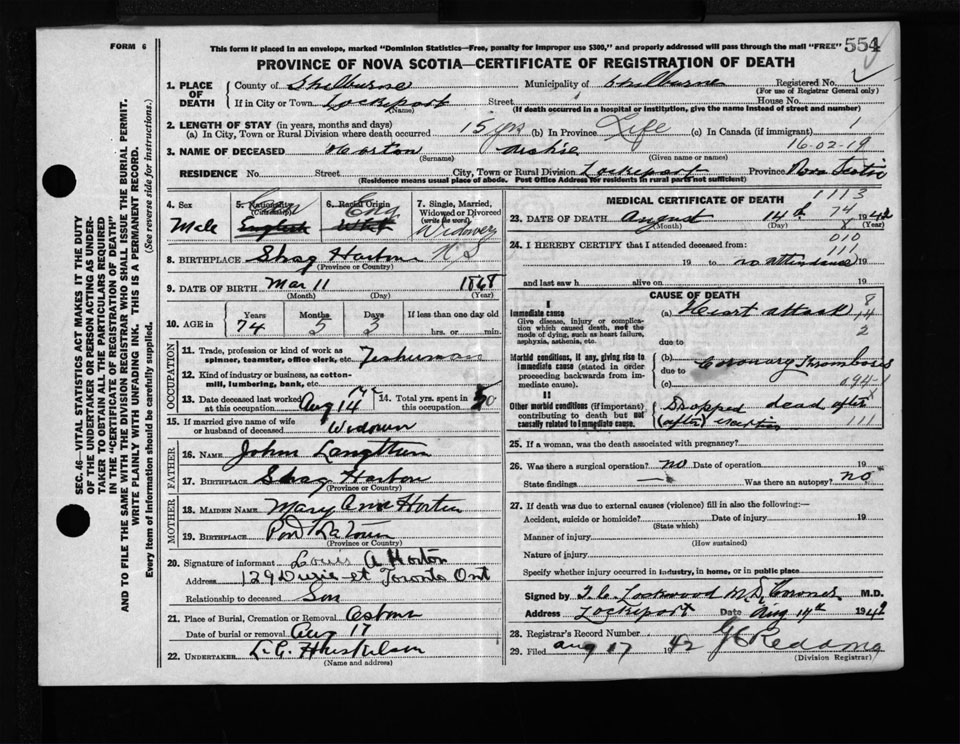 FORM 6
This form if placed in an envelope, marked "Dominion Statistics—Free, penalty for improper use $300," and properly addressed will pass through the mail "FREE"
554
PROVINCE OF NOVA SCOTIA—CERTIFICATE OF REGISTRATION OF DEATH
SEC. 46—VITAL STATISTICS ACT MAKES IT THE DUTY
OF THE UNDERTAKER OR PERSON ACTING AS UNDER-
TAKER TO OBTAIN ALL THE PARTICULARS REQUIRED
IN THE "CERTIFICATE OF REGISTRATION OF DEATH"
AND TO FILE THE SAME WITH THE DIVISION REGISTRAR WHO SHALL ISSUE THE BURIAL PERMIT.
WRITE PLAINLY WITH UNFADING INK. THIS IS A PERMANENT RECORD.
Every item of information should be carefully supplied. (See reverse side for instructions.)
1. PLACE OF DEATH
County of Shelburne Municipality of Shelburne Registered No.
(For use of Registrar General only)
If in City or Town Lockeport Street House No.
(Name) (If death occurred in a hospital or institution, give the name instead of street and number)
2. LENGTH OF STAY (in years, months and days)
(a) In City, Town or Rural Division where death occurred 15 yrs (b) In Province Life (c) In Canada (if immigrant) 1
16-02-19
3. NAME OF DECEASED Horton Archie
(Surname) (Given name or names)
RESIDENCE No. Street City, Town or Rural Division Lockeport Province Nova Scotia
(Residence means usual place of abode. Post Office Address for residents in rural parts not sufficient)
4. Sex
Male
5. Nationality
(Citizenship)
English
6. Racial Origin
Eng
7. Single, Married,
Widowed or Divorced
(write the word)
8. BIRTHPLACE Shag Harbour N S
(Province or Country)
9. DATE OF BIRTH Mar 11 1868
(Month) (Day) (Year)
10. AGE in Years Months Days If less than one day old
74 5 3 hrs. or min.
OCCUPATION
11. Trade, profession or kind of work as
spinner, teamster, office clerk, etc. Fisherman
12. Kind of industry or business, as cotton-
mill, lumbering, bank, etc.
13. Date deceased last worked
at this occupation Aug 14
14. Total yrs. spent in
this occupation
15. If married give name of wife
or husband of deceased Widower
FATHER
16. NAME John
17. BIRTHPLACE Shag Harbour
(Province or Country)
MOTHER
18. MAIDEN NAME Mary Ann Horton
19. BIRTHPLACE
(Province or Country)
20. Signature of informant Louis A Horton
Address 129 st Toronto Ont
Relationship to deceased Son
21. Place of Burial, Cremation or Removal
Date of burial or removal Aug 17
22. UNDERTAKER
(Name and address)
MEDICAL CERTIFICATE OF DEATH
1113
74
23. DATE OF DEATH August 14th 1942
(Month) (Day) (Year)
24. I HEREBY CERTIFY that I attended deceased from:
010
111
19 to no attendance 19
and last saw h alive on 19
CAUSE OF DEATH
I
Immediate cause
Give disease, injury or compli-
cation which caused death, not the
mode of dying, such as heart failure,
asphyxia, asthenia, etc.
(a) Heart attack
8
14
2
due to
Morbid conditions, if any, giving rise to
immediate cause (stated in order
proceeding backwards from im-
mediate cause).
(b) Coronary Thrombosis
due to
(c) 094-1
II
Other morbid conditions (if important)
contributing to death but not
causally related to immediate cause.
Dropped dead after
(after) exertion
111
25. If a woman, was the death associated with pregnancy?
26. Was there a surgical operation? no Date of operation 19
State findings Was there an autopsy? no
27. If death was due to external causes (violence) fill in also the following:—
Accident, suicide or homicide? Date of injury 19
(State which)
Manner of injury
(How sustained)
Nature of injury
Specify whether injury occurred in industry, in home, or in public place
Signed by Lockwood M.D. Coroner M.D.
Address Lockeport Date Aug 14th 1942
28. Registrar's Record Number
29. Filed Aug 17 1942
(Division Registrar)